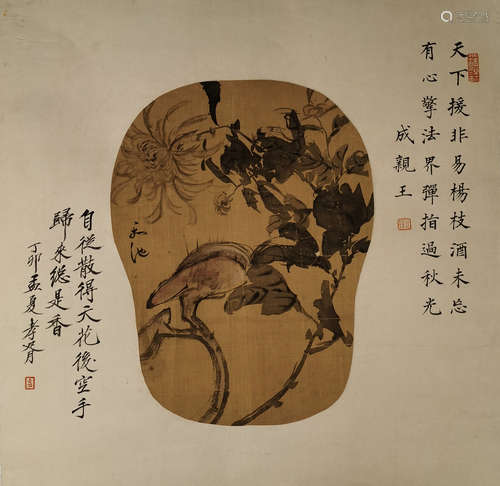 天下援非易楊枝酒未忘
有心擎法界彈指過秋光
成親王
天池
自從散得天花後空手
歸來總是香
丁卯孟夏孝胥